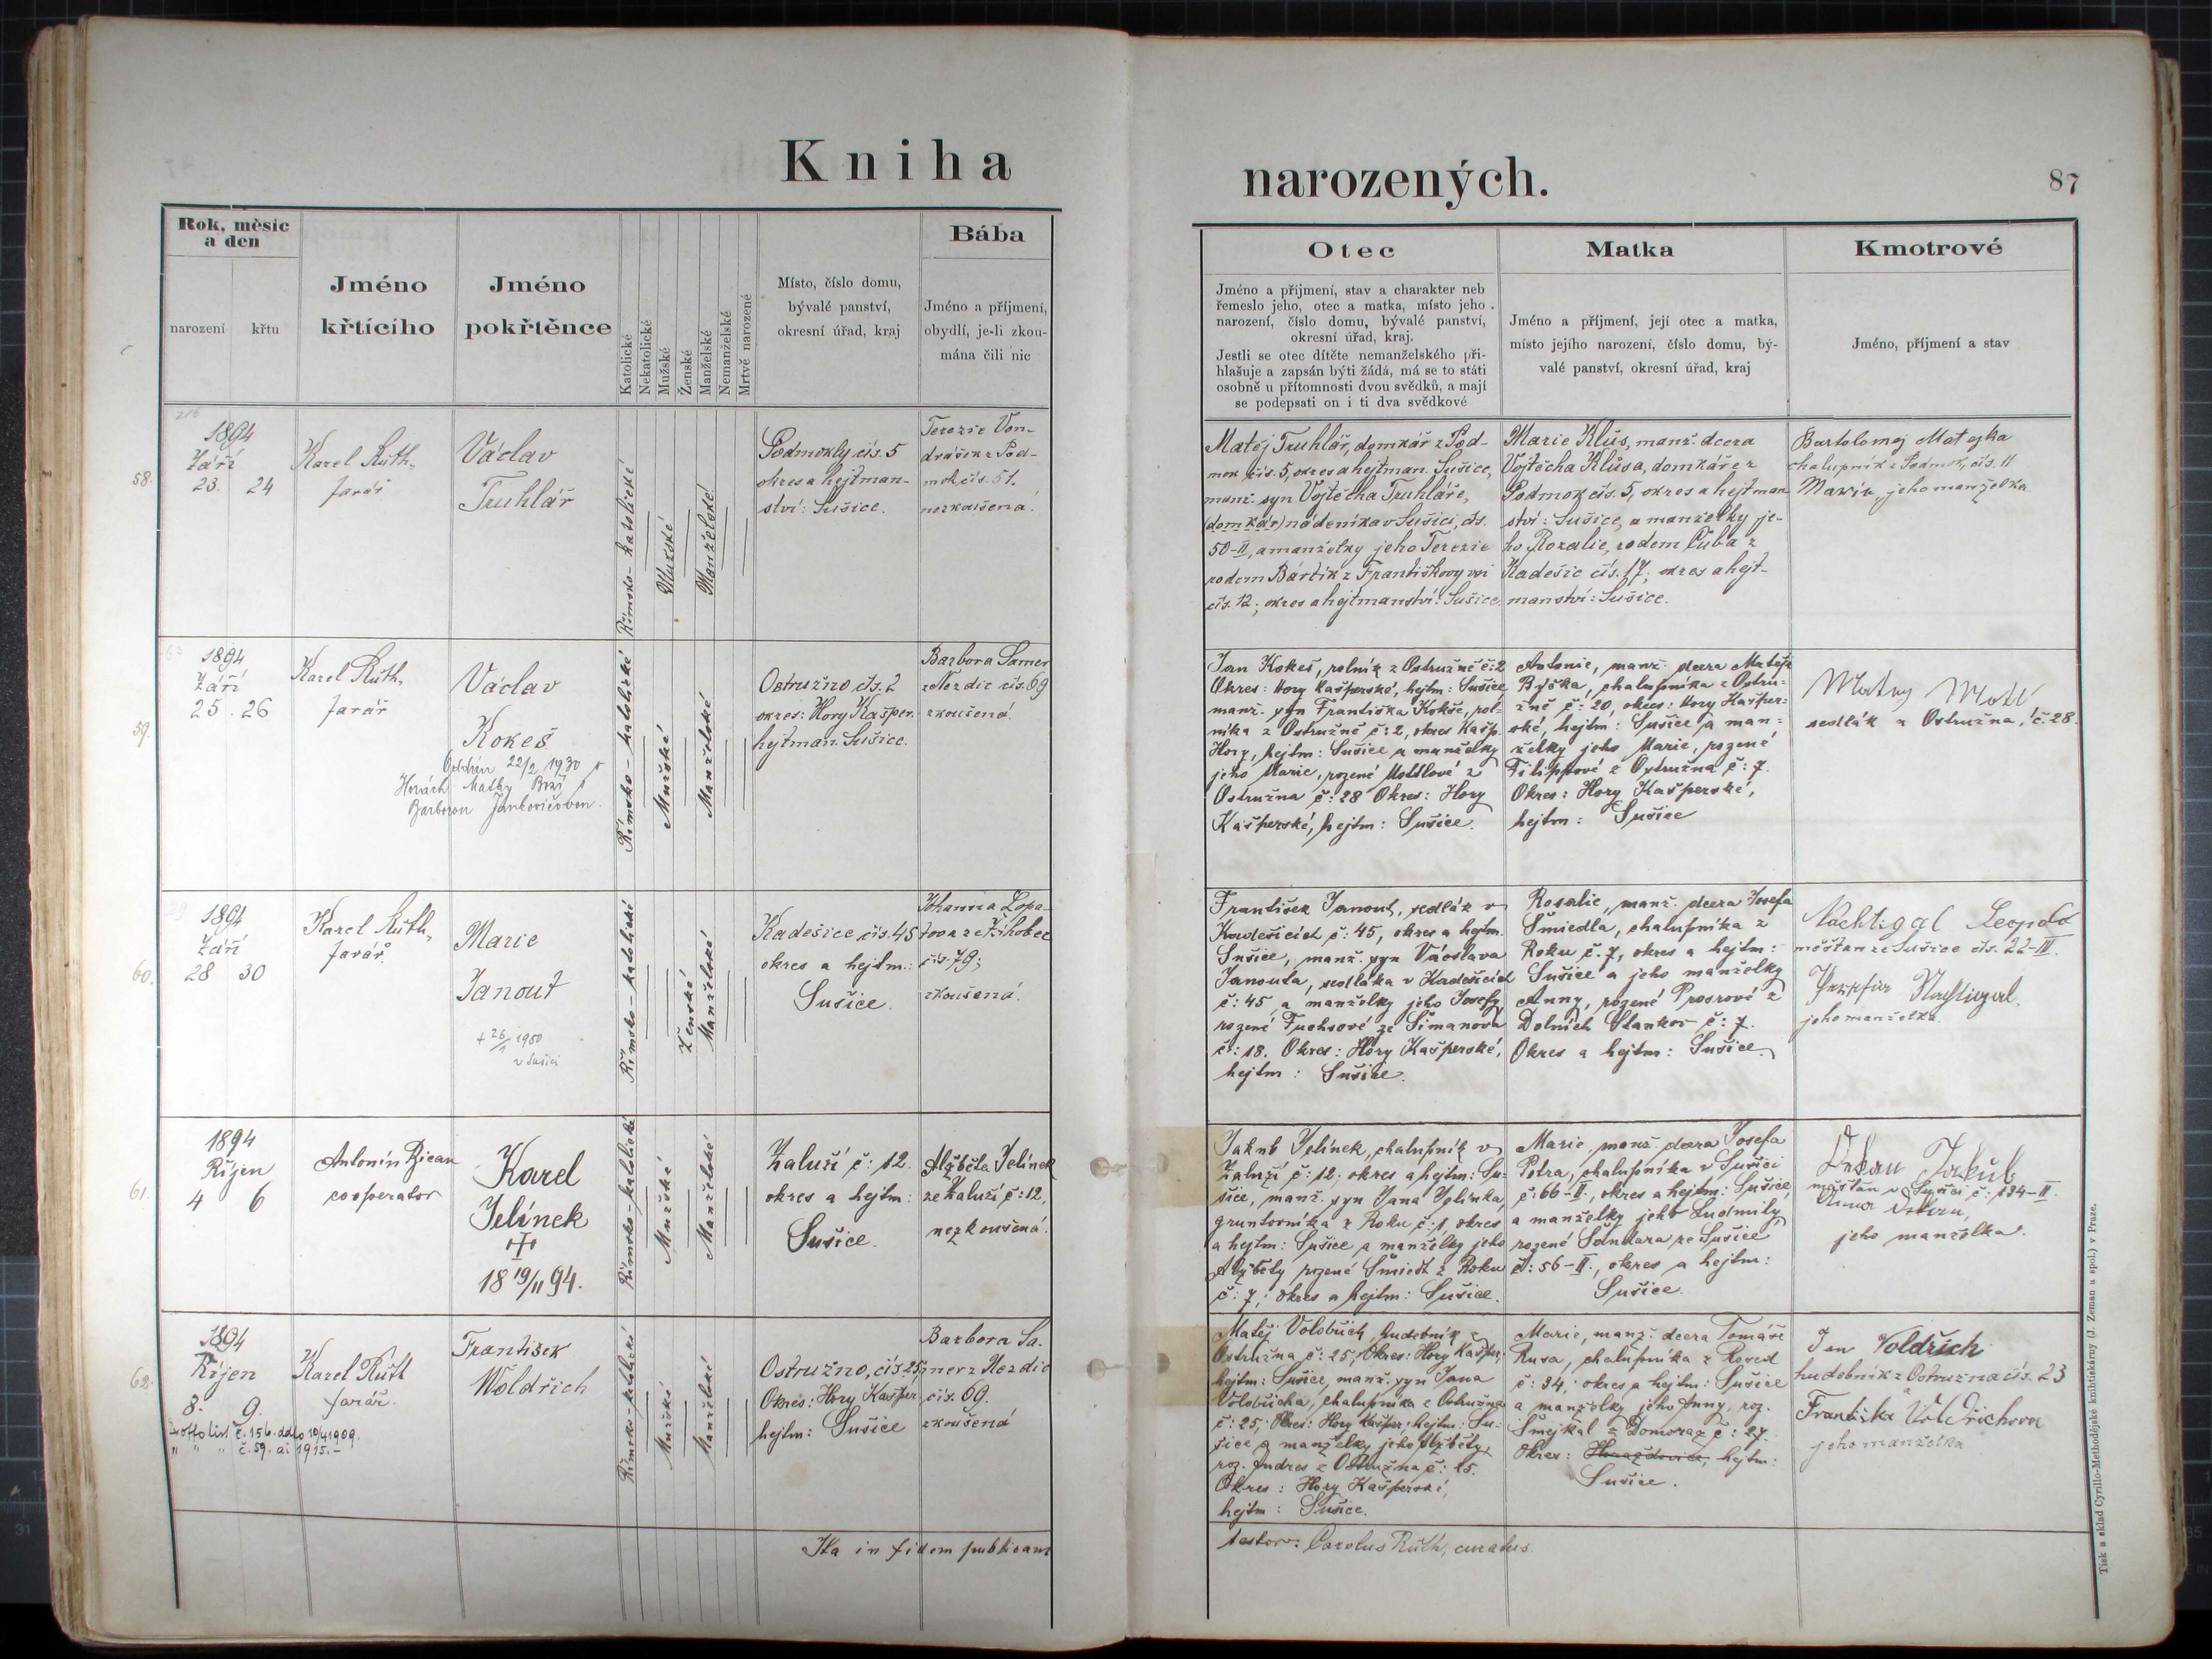 Kniha
narozených.
87
Rok, měsíc
a den
narození
křtu
Jméno
křtícího
Jméno
pokřtěnce
Katolické
Nekatolické
Mužské
Ženské
Manželské
Nemanželské
Mrtvě narozené
Místo, číslo domu,
bývalé panství,
okresní úřad, kraj
Bába
Jméno a příjmení,
obydlí, je-li zkou-
mána čili nic
Otec
Jméno a příjmení, stav a charakter neb
řemeslo jeho, otec a matka, místo jeho
narození, číslo domu, bývalé panství,
okresní úřad, kraj.
Jestli se otec dítěte nemanželského při-
hlašuje a zapsán býti žádá, má se to státi
osobně u přítomnosti dvou svědků, a mají
se podepsati on i ti dva svědkové
Matka
Jméno a příjmení, její otec a matka,
místo jejího narození, číslo domu, bý-
valé panství, okresní úřad, kraj
Kmotrové
Jméno, příjmení a stav
58.
1894
Září
23. 24
Karel Rúth,
farář
Václav
Truhlář
Římsko-katolické
Mužské
Manželské
Podmokly čís. 5
okres a hejtman-
ství: Sušice.
Terezie Von-
drášek z Pod-
mok čís. 51.
nezkoušená.
Matěj Truhlář, domkář z Pod-
mok čís. 5, okres a hejtman. Sušice,
manž. syn Vojtěcha Truhláře,
(domkář) nádeníka v Sušici, čís.
50-II, a manželky jeho Terezie
rodem Bártík z Františkovy vsi
čís. 12; okres a hejtmanství: Sušice.
Marie Klůs, manž. dcera
Vojtěcha Klůsa, domkáře z
Podmok čís. 5, okres a hejtman
ství: Sušice, a manželky je-
ho Rozalie, rodem Čuba z
Kadešic čís. 17; okres a hejt-
manství: Sušice.
Bartoloměj Matejka
chalupník z Podmok, čís. 11
Marie, jeho manželka
59.
1894
Září
25. 26
Karel Rúth,
farář
Václav
Kokeš
Oddán 22/2 1930
Horách Matky Boží
Barborou Jankovičovou.
Římsko-katolické
Mužské
Manželské
Ostružno čís. 2
okres: Hory Kašper.
hejtman. Sušice.
Barbora Samer
z Nezdic čís. 69
zkoušená.
Jan Kokeš, rolník z Ostružně č: 2
Okres: Hory Kašperské, hejtm: Sušice
manž. syn Františka Kokše, rol-
níka z Ostružně č: 2, okres Kašp.
Hory, hejtm: Sušice a manželky
jeho Marie, rozené Moltlové z
Ostružna č: 28 Okres: Hory
Kašperské, hejtm: Sušice.
Antonie, manž. dcera Matěje
Býčka, chalupníka z Ostru-
žně č: 20, okres: Hory Kašper-
ské, hejtm: Sušice a man-
želky jeho Marie, rozené
Filippové z Ostružna č: 7.
Okres: Hory Kašperské,
hejtm: Sušice
sedlák z Ostružna, č. 28.
60.
1894
Září
28 30
Karel Rúth,
farář.
Marie
Janout
+ 26/1 1980
v Sušici
Římsko-katolické
Ženské
Manželské
Kadešice čís. 45
okres a hejtm.:
Sušice.
Johanna Lopa-
tova ze Žihobec
čís. 79;
zkoušená.
František Janout, sedlák v
Kadešicích č: 45, okres a hejtm.
Sušice, manž. syn Václava
Janouta, sedláka v Kadešicích
č: 45, a manželky jeho Josefy
rozené Fuchsové ze Šimanova
č: 18. Okres: Hory Kašperské,
hejtm: Sušice.
Rosalie, manž. dcera Josefa
Šmiedla, chalupníka z
Roku č. 7, okres a hejtm:
Sušice a jeho manželky
Anny, rozené Prosrové z
Dolních Staňkov č: 7.
Okres a hejtm: Sušice.
Nachtigal Leopold
měšťan ze Sušice čís. 22-III.
Josefia Nachtigal,
jeho manželka.
61.
1894
Říjen
4 6
Antonín Řičan
cooperator
Karel
Jelínek
+
18 19/11 94.
Římsko-katolické
Mužské
Manželské
Záluží č: 12.
okres a hejtm:
Sušice.
Alžběta Jelínek
ze Záluží č: 12,
nezkoušená.
Jakub Jelínek, chalupník v
Záluží č: 12; okres a hejtm: Su-
šice, manž. syn Jana Jelínka,
gruntovníka z Roku č: 1 okres
a hejtm: Sušice a manželky jeho
Alžběty rozené Šmiedt z Roku
č: 7; okres a hejtm: Sušice.
Marie, manž. dcera Josefa
Petra, chalupníka v Sušici
č: 66-II., okres a hejtm: Sušice,
a manželky jeho Ludmily
rozené Šandara ze Sušice
č: 56-II., okres a hejtm:
Sušice.
Jakub
měšťan v Sušici č: 134-II.
jeho manželka.
62.
1894
Říjen
8. 9.
Křestní list č. 156. ddto 10/4 1909.
" " č. 59. ai 1915.-
Karel Rúth
farář.
František
Woldřich
Římsko-katolické
Mužské
Manželské
Ostružno, čís 25
Okres: Hory Kašper.
hejtm: Sušice
Barbora Sa-
mer z Nezdic
čís. 69.
zkoušená
Matěj Volobřich, hudebník z
Ostružna č: 25; Okres: Hory Kašper;
hejtm: Sušice, manž. syn Jana
Volobřicha, chalupníka z Ostružna
č: 25; Okres: Hory Kašper; hejtm: Su-
šice a manželky jeho Alžběty
roz. Andres z Ostružna č: 15.
Okres: Hory Kašperské,
hejtm: Sušice.
Marie, manž. dcera Tomáše
Rusa, chalupníka z Rosed
č: 34; okres a hejtm: Sušice
a manželky jeho Anny, roz.
Smejkal z Domoraz č: 27.
Okres: Horažďovice, hejtm:
Sušice.
Jan Voldřich
hudebník z Ostružna čís. 23
a
Františka Voldřichova
jeho manželka
Ita in fidem publicam
testor: Carolus Rúth, curatus.
Tisk a sklad Cyrillo-Methodějské knihtiskárny (J. Zeman a spol.) v Praze.